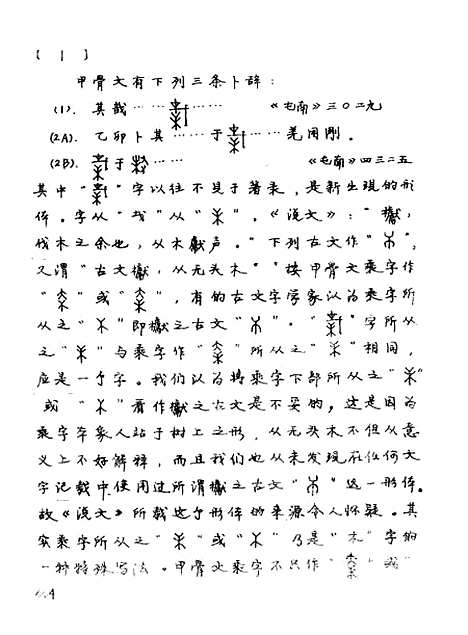 [ 1 ]
甲骨文有下列三条卜辞：
(1). 其戠…… …… 《屯南》三〇二九
(2A). 乙卯卜其……于……羌用刚。
(2B). 于……《屯南》四三二五
其中“ ”字以往不见于著录，是新出现的形
体。字从“ ”从“ ”。《说文》：“欁，
伐木之余也，从木献声。”下列古文作“ ”，
又谓“古文欁，从无头木”“按甲骨文乘字作
“ ”或“ ”，有的古文字学家认为乘字所
从之“ ”即欁之古文“ ”。“ ”字所从
之“ ”与乘字作“ ”所从之“ ”相同，
应是一个字。我们认为将乘字下部所从之“ ”
或“ ”看作欁之古文是不妥的，这是因为
乘字本象人站于树上之形，从无头木不但从意
义上不好解释，而且我们也从未发现在任何文
字记载中使用过所谓欁之古文“ ”这一形体。
故《说文》所载这个形体的来源令人怀疑。其
实乘字所从之“ ”或“ ”乃是“木”字的
一种特殊写法。甲骨文乘字不只作“ ”或“
4